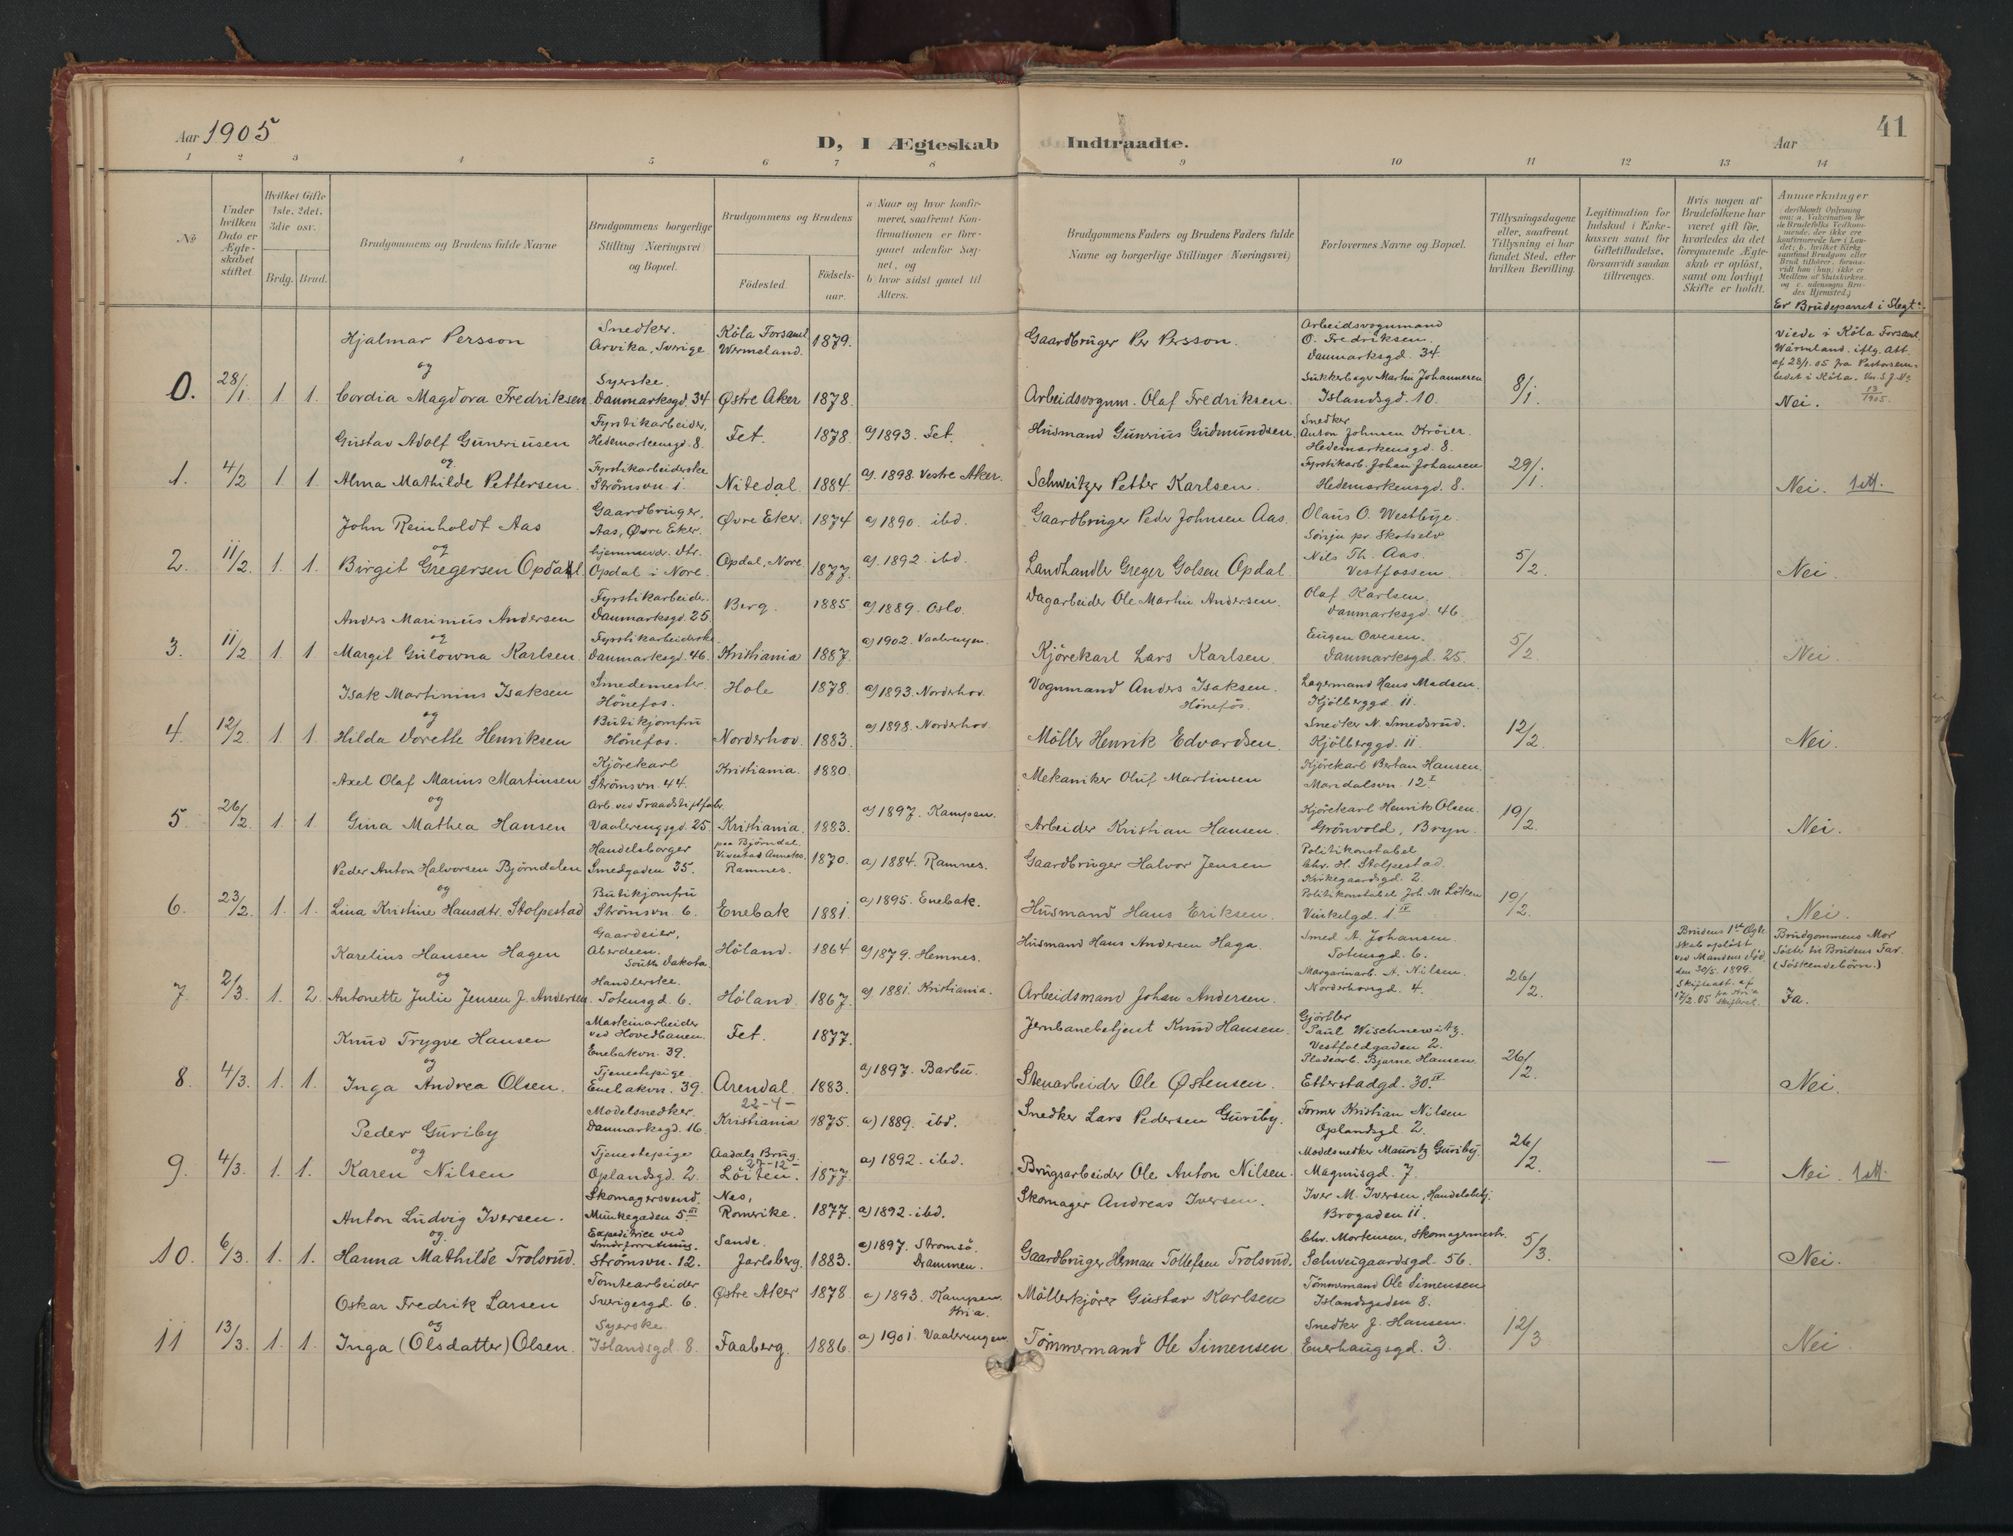 Aar 1905
D, I Ægteskab Indtraadte.
Aar
41
1 2 3 4 5 6 7 8 9 10 11 12 13 14
No
Under hvilken Dato er Ægteskabet stiftet
Hvilket Gifte 1ste, 2det, 3die osv.
Brdg. Brud.
Brudgommens og Brudens fulde Navne
Brudgommens borgerlige Stilling Næringsvei og Bopæl.
Brudgommens og Brudens
Födested.
Födsels-aar.
a: Naar og hvor konfirmeret, saafremt Konfirmationen er foregaaet udenfor Sognet, og
b: hvor sidst gaaet til Alters.
Brudgommens Faders og Brudens Faders fulde Navne og borgerlige Stillinger (Næringsvei)
Forlovernes Navne og Bopæl.
Tillysningsdagene eller, saafremt Tillysning ei har fundet Sted, efter hvilken Bevilling.
Legitimation for Indskud i Enkekassen samt for Giftetilladelse, forsaavidt saadan tiltrænges.
Hvis nogen af Brudefolkene har været gift før, hvorledes da det foregaaende Ægteskab er opløst, samt om lovligt Skifte er holdt.
Anmærkninger
Er Brudeparret i Slegt?
Hjalmar Persson
Snedker.
Arvika, Sverige
Köla Forsaml.
Wermeland.
1879.
Gaardbruger Per Persson.
Arbeidsvognmand
O. Fredriksen
Danmarksgd. 34
viede i Köla Forsaml.
Wärmland. iflg. Att.
af 28/1. 05 fra Pastorsem-
bedet i Köla.
13/1905.
og
0. 28/1 1. 1. Cordia Magdora Fredriksen
Syerske.
Danmarksgd. 34
Østre Aker 1878.
Arbeidsvognm. Olaf Fredriksen
Sukkerbager Martin Johannesen
Islandsgd. 10.
8/1.
Nei.
Gustav Adolf Guneriusen
Fyrstikarbeider,
Hedemarkensgd. 8.
Fet. 1878. a) 1893. Fet.
Husmand Gunerius Gudmundsen
Snedker
Anton Johnsen Krøier
Hedemarkensgd. 8.
og
1. 4/2 1. 1. Alma Mathilde Pettersen.
Fyrstikarbeiderske
Strömsvn. 1.
Nitedal. 1884. a). 1898. Vestre Aker.
Schweitzer Petter Karlsen.
Fyrstikarb. Johan Johansen
Hedemarkensgd. 8.
29/1.
Nei.
John Reinholdt Aas
Gaardbruger,
Aas, Øvre Eker.
Øvre Eker. 1874 a) 1890. ibd.
Gaardbruger Peder Johnsen Aas.
Olaus O. Westbye.
Sörsju pr. Skotselv
og
2. 11/2 1. 1. Birgit Gregersen Opdahl
hjemmevær. dtr.
Opdal i Nore.
Opdal, Nore 1877. a). 1892. ibd.
Landhandler Greger Golsen Opdal.
Nils Th. Aas.
Vestfossen.
5/2.
Nei.
Anders Marinius Andersen
Fyrstikarbeider.
Danmarksgd. 25.
Berg. 1885. a) 1889. Oslo.
Dagarbeider Ole Martin Andersen.
Olaf Karlsen.
Danmarksgd. 46.
og
3. 11/2 1. 1. Margit Gulowna Karlsen.
Fyrstikarbeiderske
Danmarksgd. 46.
Kristiania 1887. a) 1902. Vaalerengen.
Kjörekarl Lars Karlsen.
Eugen Ovesen.
Danmarksgd. 25.
5/2.
Nei.
Isak Martinius Isaksen
Smedemester.
Hönefos.
Hole 1878. a) 1893. Norderhov.
Vognmand Anders Isaksen.
Hönefos.
Lagermand Hans Madsen.
Kjölberggd. 11.
og
4. 12/2. 1. 1. Hilda Dorette Henriksen
Butikjomfru
Hönefos.
Norderhov. 1883. a) 1898. Norderhov.
Möller Henrik Edvardsen.
Snedker N. Smedsrud.
Kjölberggd. 11.
12/2.
Nei.
Axel Olaf Marius Martinsen
Kjörekarl
Strömsvn. 44.
Kristiania. 1880.
Mekaniker Oluf Martinsen
Kjörekarl Bertan Hansen.
Maridalsvn. 12 I
og
5. 26/2. 1. 1. Gina Mathea Hansen
Arb. ved Traadstiftfabr.
Vaalerengsgd. 25.
Kristiania. 1883. a) 1897. Kampen.
Arbeider Kristian Hansen.
Kjörekarl Henrik Olsen
Grönvold, Bryn.
19/2.
Nei.
Peder Anton Halvorsen Björndalen
Handelsborger
Smedgaden 35.
paa Bjørndal,
Ramnes. 1870. a) 1884. Ramnes.
Gaardbruger Halvor Jensen
Politikonstabel
Chr. H. Stolpestad.
Kirkegaardsgd. 2.
og
6. 23/2. 1. 1. Lina Kristine Hansdtr. Stolpestad
Butikjomfru
Strömsvn. 6.
Enebak 1881. a) 1895. Enebak.
Husmand Hans Eriksen.
Politikonstabel Joh. M. Löken
Vinkelgd. 1 IV
19/2.
Nei.
Karelius Hansen Hagen
Gaardeier,
Aberdeen
South Dakota.
Höland. 1864 a) 1879. Hemnes.
Husmand Hans Andersen Haga.
Smed A. Johansen.
Totensgd. 6.
Brudens 1ste Ægte-
skab opløst
ved Mandens Død
den 30/5. 1899.
Skifteatt. af
17/2. 05 fra Kria
Skifteret.
Brudgommens Mor
Søster til Brudens Far.
(Söskendebörn.)
og
7. 2/3. 1. 2. Antonette Julie Jensen f. Andersen
Handlerske.
Totensgd. 6.
Höland. 1867. a) 1881. Kristiania.
Arbeidsmand Johan Andersen.
Margarinarb. A. Nilsen.
Norderhovgd. 4.
26/2.
Ja.
Knud Trygve Hansen
Maskinarbeider
ved Hovedbanen.
Enebakvn. 39.
Fet. 1877.
Jernbanebetjent Knud Hansen.
Gjörtler
Paul Wischnewitz.
Vestfoldgaden 2.
og
8. 4/3. 1. 1. Inga Andrea Olsen.
Tjenestepige
Enebakvn. 39.
Arendal. 1883. a) 1897. Barbu.
Stenarbeider Ole Østensen.
Pladearb. Bjarne Hansen.
Etterstadgd. 30. IV
26/2.
Nei.
Peder Guriby
Modelsnedker
Danmarksgd. 16.
22-4-
Kristiania 1875. a) 1889. ibd.
Snedker Lars Pedersen Guriby.
Former Kristian Nilsen
Oplandsgd. 2.
og
9. 4/3. 1. 1. Karen Nilsen
Tjenestepige
Oplandsgd. 2.
Aadals Brug.
27-12-
Löiten. 1877. a) 1892. ibd.
Brugsarbeider Ole Anton Nilsen.
Modelsnedker Mauritz Guriby.
Magnusgd. 7.
26/2.
Nei.
Anton Ludvig Iversen.
Skomagersvend.
Munkegaden 5. III
Nes,
Romerike. 1877. a) 1892. ibd.
Skomager Andreas Iversen.
Iver M. Iversen, Handelsbetj.
Brogaden 11.
og
10. 6/3. 1. 1. Hanna Mathilde Trolsrud.
Expeditrice ved
Smörforretning.
Strömsvn. 12.
Sande.
Jarlsberg. 1883. a) 1897. Strømsö.
Drammen.
Gaardbruger Herman Tollefsen Trolsrud.
Chr. Mortensen, Skomagermestr.
Schweigaardsgd. 56.
5/3.
Nei.
Oskar Fredrik Larsen
Tomtearbeider
Sverigesgd. 6.
Østre Aker 1878. a) 1893. Kampen.
Kria.
Möllerkjörer Gustav Karlsen
Tömmermand Ole Simensen
Islandsgaden 8.
og
11 13/3. 1. 1. Inga (Olsdatter) Olsen.
Syerske.
Islandsgd. 8.
Faaberg. 1886. a) 1901. Vaalerengen
Tömmermand Ole Simensen
Snedker J. Hansen.
Enerhaugsgd. 3.
12/3.
Nei.